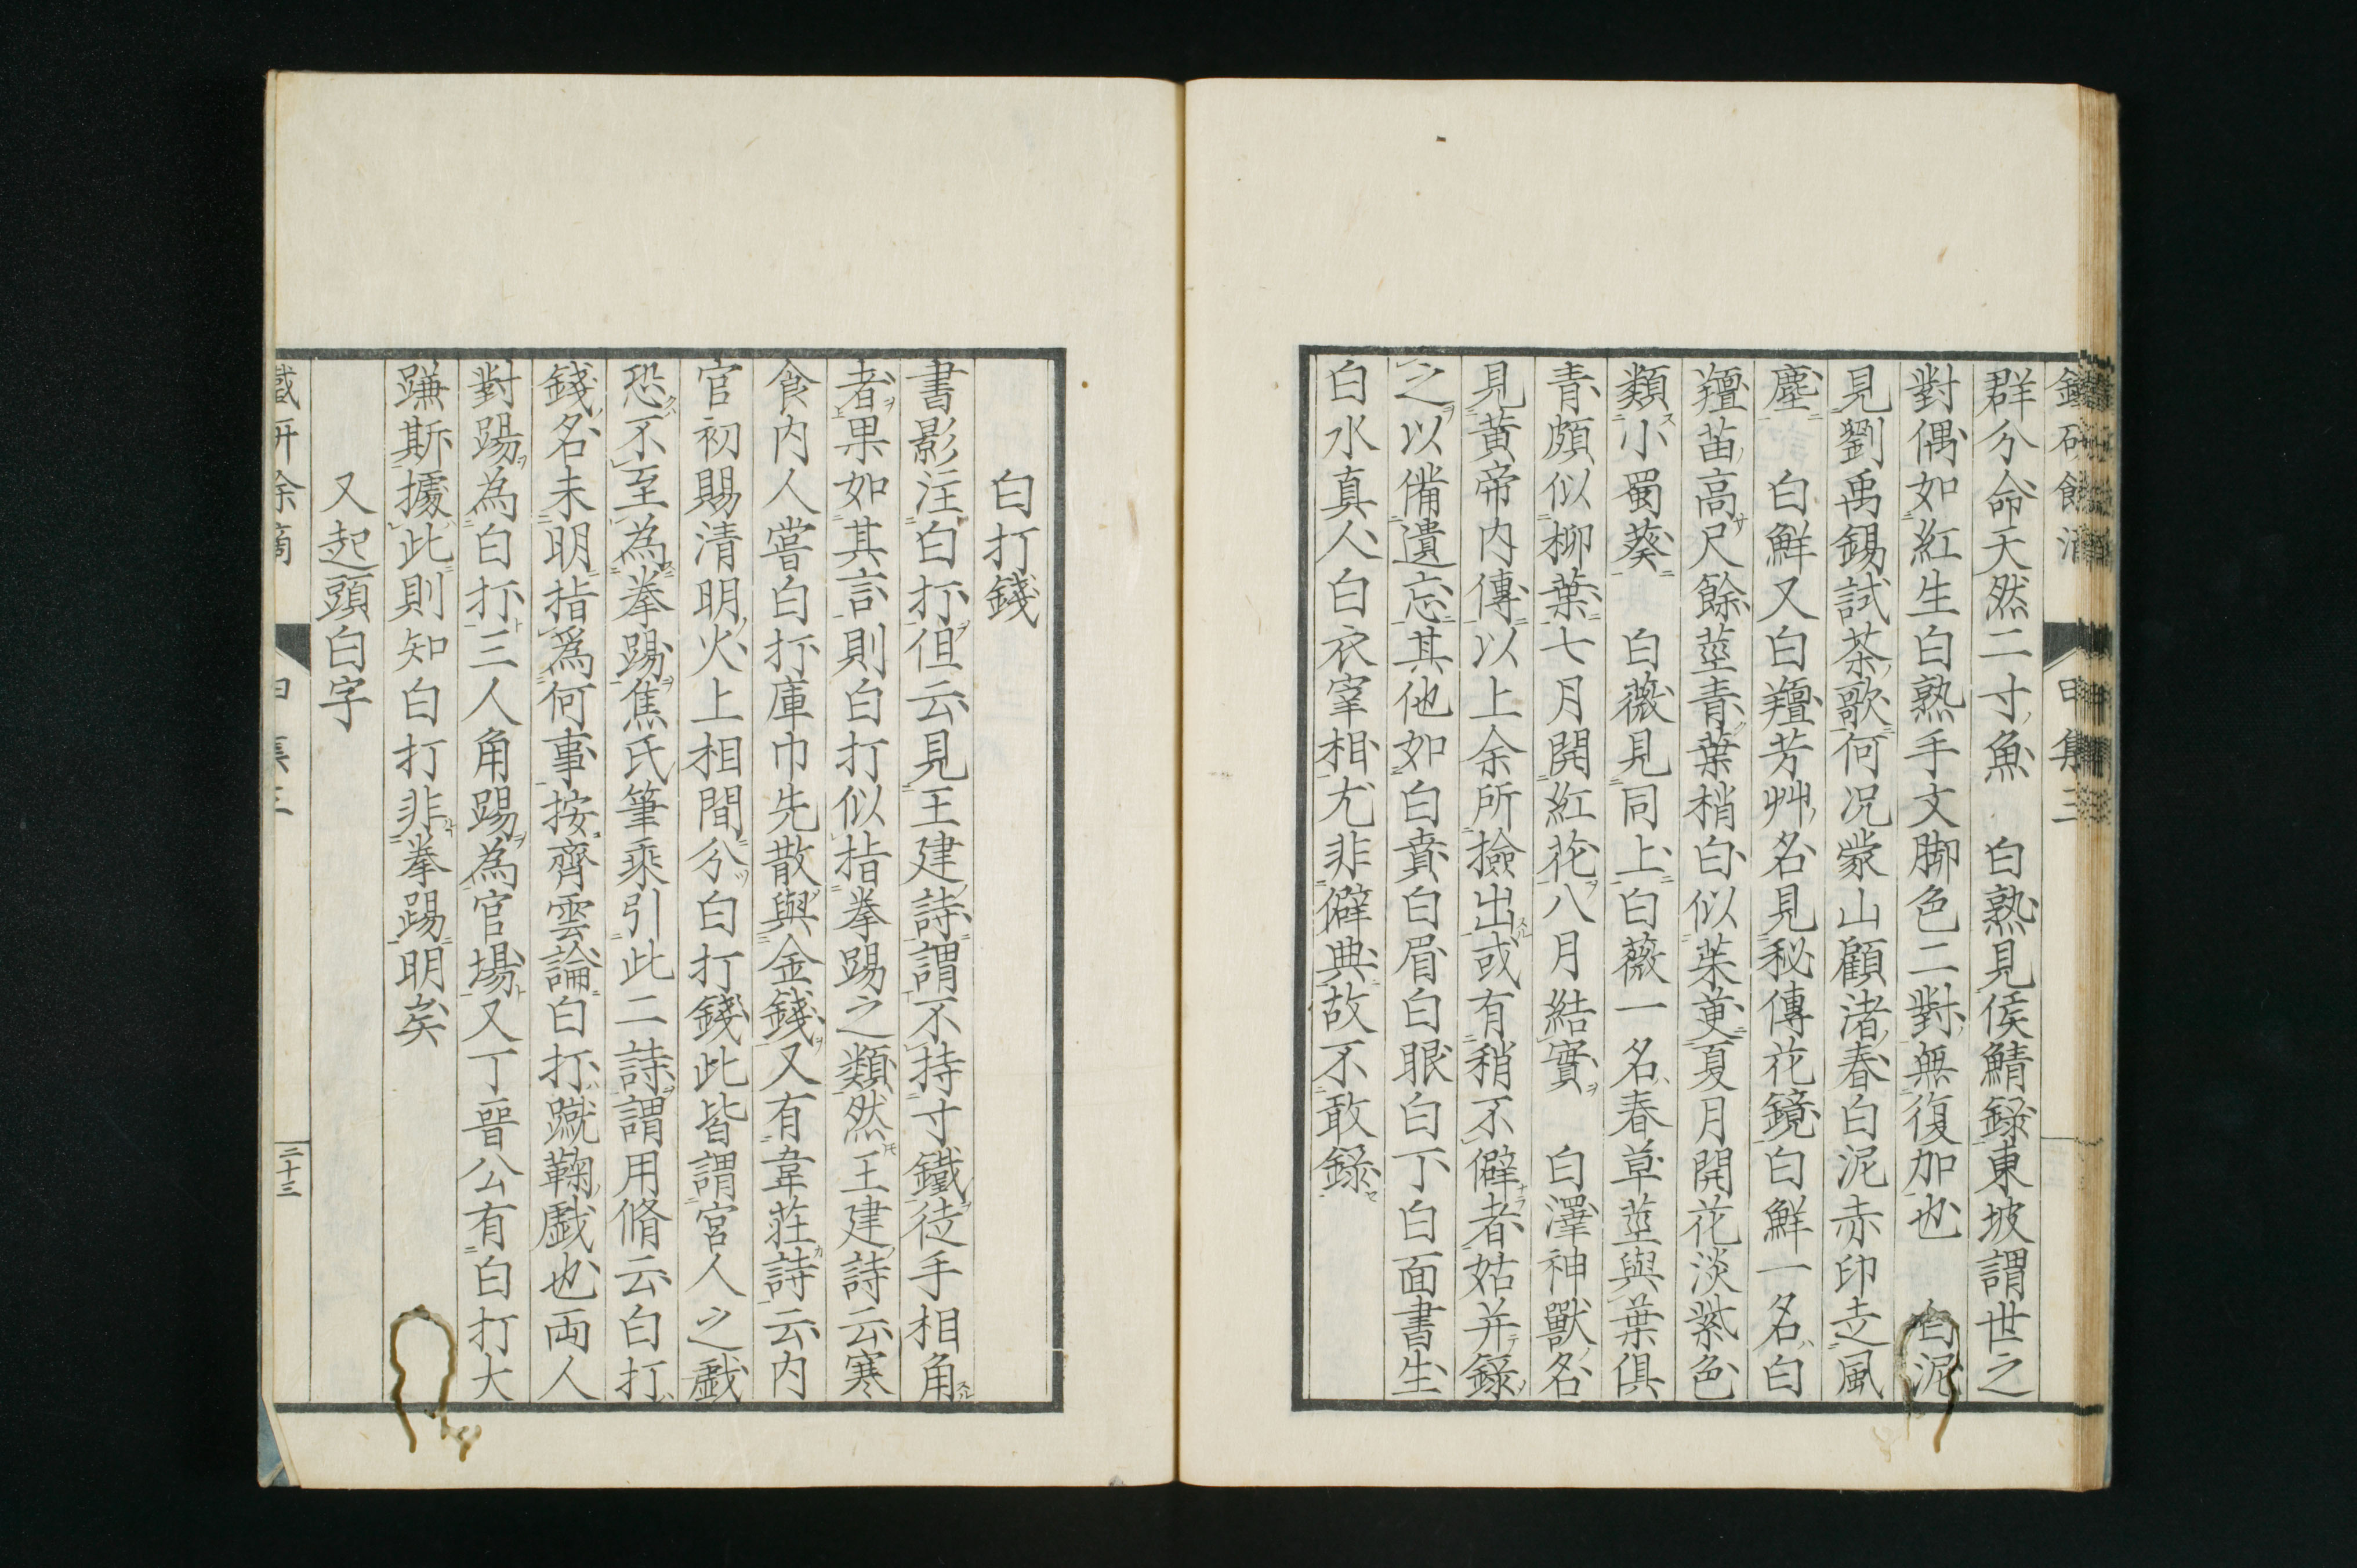 群分命天然二寸魚　白熟見侯鯖錄東坡謂世之
對偶如紅生白熟手文脚色二對無復加也　白泥
見劉禹錫試茶歌何況蒙山顧渚春白泥赤印走風
塵　白鮮又白羶芳艸名見秘傳花鏡白鮮一名白
羶苗高尺餘莖青葉梢白似茱萸夏月開花淡紫色
類小蜀葵　白薇見同上白薇一名春草莖與葉俱
青頗似柳葉七月開紅花八月結實　白澤神獸名
見黃帝內傳以上余所撿出或有稍不僻者姑并錄
之以備遺忘其他如白賁白眉白眼白丁白面書生
白水真人白衣宰相尤非僻典故不敢錄
白打錢
書影注白打但云見王建詩謂不持寸鐵徒手相角
者果如其言則白打似指拳踢之類然王建詩云寒
食内人嘗白打庫巾先散與金錢又有韋莊詩云内
官初賜清明火上相間分白打錢此皆謂宮人之戲
恐不至為拳踢焦氏筆乘引此二詩謂用脩云白打
錢名未明指爲何事按齊雲論白打蹴鞠戲也両人
對踢為白打三人角踢為官場又丁晉公有白打大
蹕斯據此則知白打非拳踢明矣
又起頭白字
曰集三
二十三